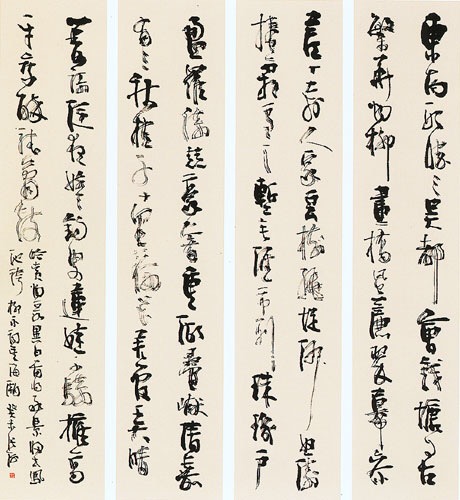 東南形勝三吳都會錢塘自古
繁華烟柳畫橋風簾翠幕參
差十萬人家雲樹繞堤沙怒濤
捲霜雪天塹無涯市列珠璣戶
盈羅綺競豪奢重湖疊巘清嘉
有三秋桂子十里荷花羌管弄晴
菱歌泛夜嬉嬉釣叟蓮娃千騎擁高
牙乘醉聽簫鼓
吟賞烟霞異日圖將好景歸去鳳
池誇 柳永詞望海潮 癸未